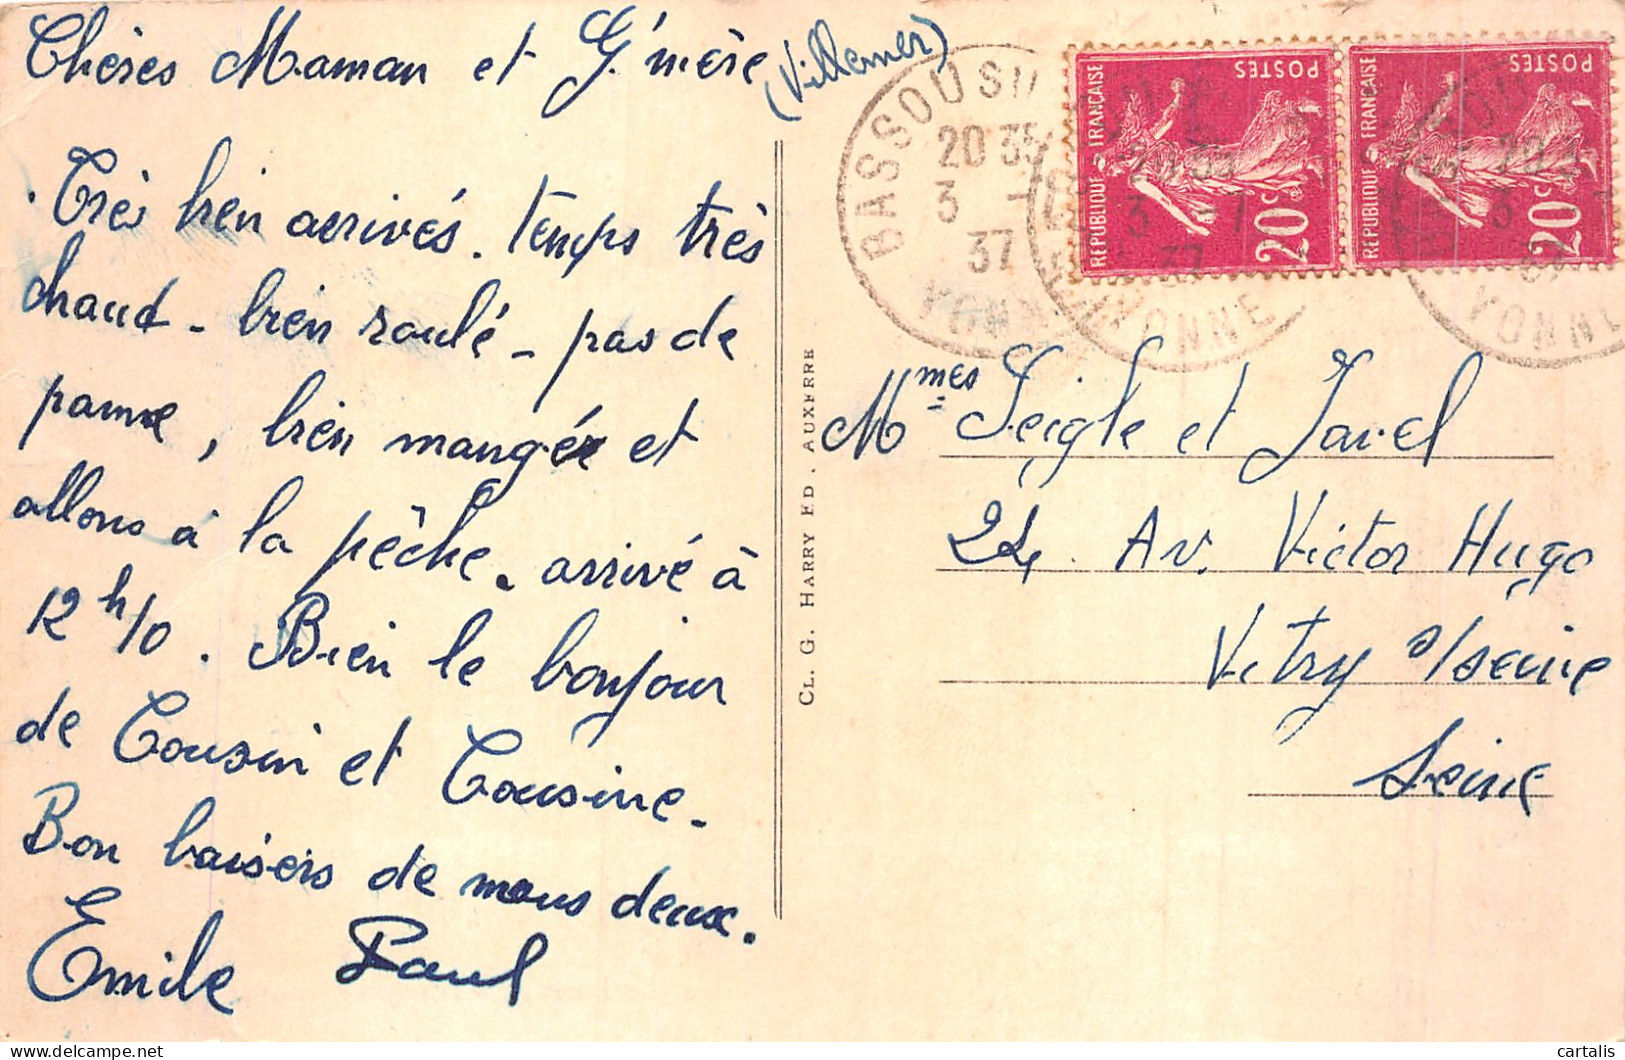 Chères Maman et G'mère (Villemer)
Très bien arrivés. Temps très
chaud - bien roulé - pas de
panne, bien mangé et
allons à la pêche. arrivé à
12 h/0. Bien le bonjour
de Cousin et Cousine.
Bon baisers de nous deux.
Emile Paul
CL. G. HARRY ED. AUXERRE
BASSOU
20 35
3 -
37
YONNE
20 35
3 - 1
37
YONNE
20
3
37
YONNE
REPUBLIQUE FRANÇAISE
POSTES
20c
REPUBLIQUE FRANÇAISE
POSTES
20c
Mmes Seigle et Javel
24 Av. Victor Hugo
Vitry s/seine
Seine
cartalis